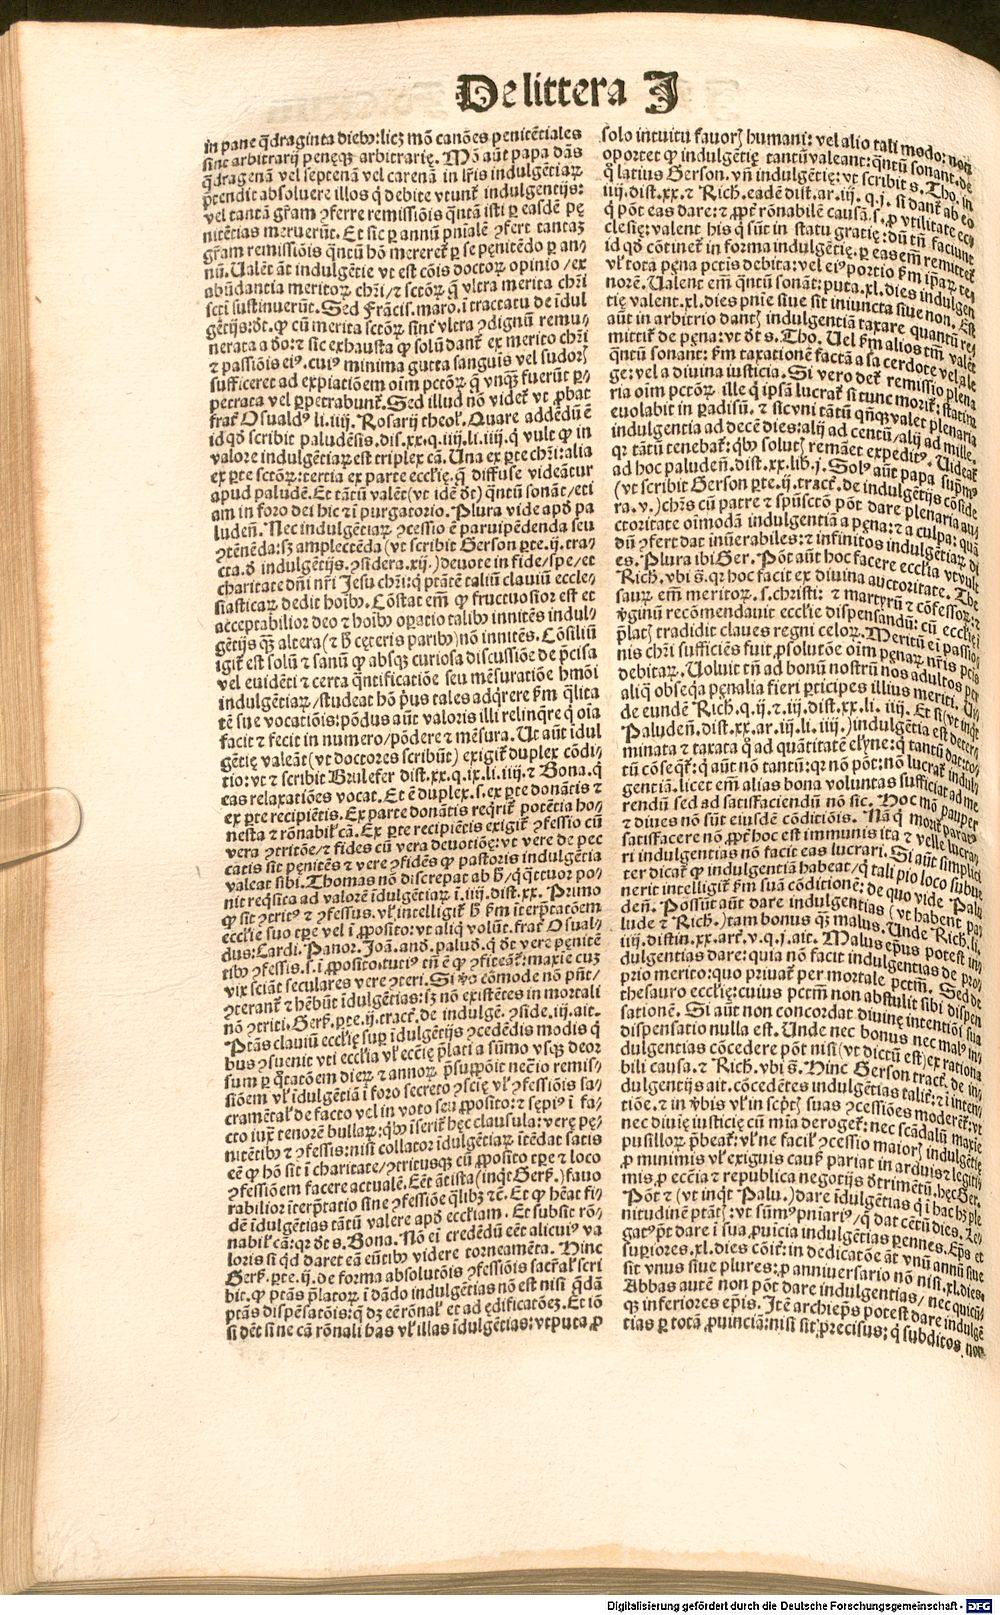 De littera J
in pane q̄draginta dieb⁹: lic₃ mō canōes penitētiales
sint arbitrarij penęq₃ arbitrarię. Mō aūt papa dās
q̄dragenā vel septenā vel carenā in lr̄is indulgētiaꝝ
p̄tendit absoluere illos q̄ debite vtunt᷑ indulgentijs:
vel tantā gr̄am ꝯferre remissiōis q̄ntā isti ꝑ easdē pę
nitētias meruerūt. Et sic ꝑ annū pniālē ꝯfert tantaꝫ
gr̄am remissiōis q̄ntū hō mereret᷑ ꝑ se penitēdo ꝑ an-
nū. Ualēt āt indulgētie vt est cōis doctoꝝ opinio / ex
abūdantia meritoꝝ chr̄i / ⁊ sctōꝝ q̄ vltra merita chr̄i
sctī sustinuerūt. Sed Frācis. maro. i tractatu de īdul
gētijs: dt̄. ꝙ cū merita sctōꝝ sint vltra ꝯdignū remu-
nerata a dō: ⁊ sic exhausta ꝙ solū dant᷑ ex merito chr̄i
⁊ passiōis ei⁹. cui⁹ minima gutta sanguis vel sudorꝭ
sufficeret ad expiatiōem oīm pctōꝝ q̄ vnq̄₃ fuerūt ꝑ-
petrata vel ꝑpetrabunt᷑. Sed illud nō videt᷑ vt ꝓbat
frat᷑ Osuald⁹ li. iiij. Rosarij theol̓. Quare addēdū ē
id qd̄ scribit paludēsis. dis. xx. q. iiij. li. iiij. q̄ vult ꝙ in
valore indulgētiaꝝ est triplex cā. Una ex ꝑte chr̄i: alia
ex ꝑte sctōꝝ: tertia ex parte eccl̄ię. q̄ diffuse videātur
apud paludē. Et tātū valēt (vt idē dt̄) q̄ntū sonāt / eti
am in foro dei hic ⁊ ī purgatorio. Plura vide apd̄ pa
luden̄. Nec indulgētiaꝝ ꝯcessio ē paruipēdenda seu
ꝯtēnēda: sꝫ amplectēda (vt scribit Gerson ꝑte. ij. tra-
cta. d̄ indulgētijs. ꝯsidera. xij.) deuote in fide / spe / et
charitate dn̄i nr̄i Jesu chr̄i: q̄ ptātē taliū clauiū eccle-
siasticaꝝ dedit hoīb⁹. Cōstat em̄ ꝙ fructuosior est et
acceptabilior deo ⁊ hoīb⁹ oꝑatio talib⁹ innitēs indul-
gētijs q̄₃ altera (⁊ h̄ cęteris parib⁹) nō innitēs. Cōsiliū
igit᷑ est solū ⁊ sanū ꝙ absq₃ curiosa discussiōe de p̄cisa
vel euidēti ⁊ certa q̄ntificatiōe seu mēsuratiōe hmōi
indulgētiaꝝ / studeat hō p̄us tales adq̄rere ẜm q̄lita
tē sue vocatiōis: pōdus aūt valoris illi relinq̄re q̄ oīa
facit ⁊ fecit in numero / pōdere ⁊ mēsura. Ut aūt īdul
gētię valeāt (vt doctores scribūt) exigit᷑ duplex cōdi-
tio: vt ⁊ scribit Brulefer dist. xx. q. ix. li. iiij. ⁊ Bona. q̄
eas relaxatiōes vocat. Et ē duplex. s. ex ꝑte donātis ⁊
ex ꝑte recipiētis. Ex parte donātis reqrit᷑ potētia ho-
nesta ⁊ rōnabil̓ cā. Ex ꝑte recipiētis exigit᷑ ꝯfessio cū
vera ꝯtritōe / ⁊ fides cū vera deuotiōe: vt vere de pec
catis sit pęnitēs ⁊ vere ꝯfidēs ꝙ pastoris indulgētia
valeat sibi. Thomas nō discrepat ab h̄ / q̄ q̄ttuor po-
nit reqsita ad valorē īdulgētiaꝝ ī. iiij. dist. xx. Primo
ꝙ sit ꝯtrit⁹ ⁊ ꝯfessus. vl̓ intelligit᷑ h̄ ẜm īterp̄tatōem
eccl̄ie suo tꝑe vel ī ꝓposito: vt aliq̄ volūt. frat᷑ Osual-
dus: Cardi. Panor. Joā. and. palud. q̄ dt̄ vere pęnitē
tib⁹ ꝯfessis. s. ī ꝓposito. tuti⁹ tn̄ ē ꝙ ꝯfiteāt᷑: maxie cuꝫ
vix sciāt seculares vere ꝯteri. Si v̄o eōmode nō pn̄t /
ꝯterant᷑ ⁊ hēbūt īdulgētias: sꝫ nō existētes in mortali
nō ꝯtriti. Gers̄. ꝑte. ij. tract. de indulgē. ꝯside. iij. ait.
Ptās clauiū eccl̄ię suꝑ īdulgētijs ꝯcedēdis modis q̄
bus ꝯsuenit vti eccl̄ia vl̓ eccīe p̄lati a sūmo vsq₃ deor
sum ꝑ q̄tatōem dieꝝ ⁊ annoꝝ p̄supponit necīo remis-
siōem vl̓ īdulgētiā ī foro secreto ꝯscię vl̓ ꝯfessiōis sa-
cramētal̓ de facto vel in voto seu ꝓposito: ⁊ sępi⁹ ī fa-
cto iux̄ tenorē bullaꝝ: qb⁹ īserit᷑ hęc clausula: verę pę-
nitētib⁹ ⁊ ꝯfessis: nisi collator īdulgētiaꝝ ītēdat satis
eē ꝙ hō sit ī charitate / ꝯtritusq₃ cū ꝓposito tꝑe ⁊ loco
ꝯfessiōem facere actualē. Eēt āt ista (inq̄t Gers̄.) fauo
rabilior īterp̄tatio sine ꝯfessiōe q̄lib₃ ⁊c̄. Et ꝙ hēat fi-
dē īdulgētias tātū valere apd̄ eccl̄iam. Et subsit rōn-
nabil̓ cā: qr dt̄ s. Bona. Nō ei credēdū eēt alicui⁹ va
loris si qd̄ daret eā eūtib⁹ videre torneamēta. Hinc
Gers̄. ꝑte. ij. de forma absolutōis ꝯfessiōis sacr̄al̓ scri
bit. ꝙ ptās p̄latoꝝ ī dādo indulgētias nō est nisi q̄dā
ptās dispēsatōis: q̄ dꝫ eē rōnal̓ et ad ędificatōeꝫ. Et iō
si dēt sine cā rōnali has vl̓ illas īdulgētias: vtputa ꝓ
solo intuitu fauorꝭ humani: vel alio tali modo: non
oportet ꝙ indulgētię tantū valeant: q̄ntū sonant. de
q̄ latius Gerson. vn̄ indulgētię: vt scribit s. Tho. in
iiij. dist. xx. ⁊ Rich. eadē dist. ar. iij. q. j. si dant᷑ ab eo
q̄ pōt eas dare: ⁊ ꝓpt᷑ rōnabilē causā. s. ꝓ vtilitate ec
clesię: valent his q̄ sūt in statu gratię: dū tn̄ faciunt
id qd̄ cōtinet᷑ in forma indulgētię. ꝑ eas em̄ remittet᷑
vl̓ tota pęna pctīs debita: vel ei⁹ portio ẜm ip̄aꝝ te-
norē. Ualent em̄ q̄ntū sonāt: puta. xl. dies indulgen
tię valent. xl. dies pnīe siue sit iniuncta siue non. Est
aūt in arbitrio dantꝭ indulgentiā taxare quantū re-
mittit᷑ de pęna: vt dt̄ s. Tho. Uel ẜm alios tm̄ valēt
q̄ntū sonant: ẜm taxationē factā a sacerdote vel a le
ge: vel a diuina iusticia. Si vero det᷑ remissio plena
ria oīm pctōꝝ ille q̄ ip̄sā lucrat᷑ si tunc morit᷑: statim
euolabit in ꝑadisū. ⁊ sic vni tātū q̄nq₃ valet plenaria
indulgentia ad decē dies: alij ad centū / alij ad mille.
qr tātū tenebat᷑: qb⁹ solutꝭ remāet expedit⁹. Uideat᷑
ad hoc paluden̄. dist. xx. lib. j. Sol⁹ aūt papa suꝑm⁹
(vt scribit Gerson ꝑte. ij. tract. de indulgētijs cōside
ra. v.) chr̄s cū patre ⁊ sp̄usctō pōt dare plenaria au-
ctoritate oīmodā indulgentiā a pęna: ⁊ a culpa: quā
dū ꝯfert dat inūerabiles: ⁊ infinitos indulgētiaꝝ di
es. Plura ibi Ger. Pōt aūt hoc facere eccl̄ia vt vult
Rich. vbi s̄. qr hoc facit ex diuina auctoritate. The
saur⁹ em̄ meritoꝝ. s. christi: ⁊ martyrū ⁊ cōfessoꝝ: ⁊
v̄ginū recōmendauit eccl̄ie dispensandū: cū eccl̄ie
p̄latꝭ tradidit claues regni celoꝝ. Meritū ei passio
nis chr̄i sufficiēs fuit ꝓ solutōe oīm pęnaꝝ nr̄is pctīs
debitaꝝ. Uoluit tn̄ ad bonū nostrū nos adultos per
aliq̄ obseq̄a pęnalia fieri ꝑticipes illius meriti. Un̄
de eundē Rich. q. ij. ⁊ iij. dist. xx. li. iiij. Et si (vt inq̄t
Paluden̄. dist. xx. ar. iij. li. iiij.) indulgētia est deter-
minata ⁊ taxata q̄ ad quātitatē elyn̄e: q̄ tantū dat: to-
tū cōseq̄t᷑: q̄ aūt nō tantū: qr nō pōt: nō lucrat᷑ indul-
gentiā. licet em̄ alias bona voluntas sufficiat ad me-
rendū sed ad satisfaciendū nō sic. Hoc mō pauper
⁊ diues nō sūt eiusdē cōditiōis. Nā q̄ morit᷑ parat⁹
satisfacere nō ꝓpt᷑ hoc est immunis ita ⁊ velle lucra-
ri indulgentias nō facit eas lucrari. Si aūt simplici
ter dicat᷑ ꝙ indulgentiā habeat / q̄ tali pio loco subue
nerit intelligit᷑ ẜm suā cōditionē: de quo vide Palu
den̄. Possūt aūt dare indulgentias (vt habent Pa-
lude ⁊ Rich.) tam bonus q̄₃ malus. Unde Rich. li.
iiij. distin. xx. art. v. q. j. ait. Malus ep̄us potest in-
dulgentias dare: quia nō facit indulgentias de pro-
prio merito: quo priuat᷑ per mortale pctm̄. Sed de
thesauro eccl̄ię: cuius pctm̄ non abstulit sibi dispen
sationē. Si aūt non concordat diuinę intentiōi sua
dispensatio nulla est. Unde nec bonus nec mal⁹ in-
dulgentias cōcedere pōt nisi (vt dictū est) ex rationa
bili causa. ⁊ Rich. vbi s̄. Hinc Gerson tract. de in-
dulgentijs ait. cōcedētes indulgētias talit᷑: ⁊ ī inten-
tiōe. ⁊ in v̄bis vl̓ in scp̄tꝭ suas ꝯcessiōes moderēt᷑: vt
nec diuię iusticię cū mīa deroget᷑: nec scādalū maxie
pusilloꝝ p̄beat᷑: vl̓ ne facil̓ ꝯcessio maiorꝭ indulgētię
ꝓ minimis vl̓ exiguis caus̄ pariat in arduis ⁊ legiti-
mis. ꝓ eccīa ⁊ republica negotijs dt̄rimētū. hęc Ger.
Pōt ⁊ (vt inq̄t Palu.) dare īdulgētias q̄ ī hac hꝫ ple
nitudinē ptātꝭ: vt sūm⁹ pn̄iari⁹ / q̄ dat cētū dies. Le-
gat⁹ p̄t dare ī sua ꝓuicia indulgētias ꝑennes. Ep̄s et
suꝑiores. xl. dies cōit᷑: in dedicatōe āt vnū annū siue
sit vnus siue plures: ꝓ anniuersario nō nisi. xl. dies.
Abbas autē non pōt dare indulgentias / nec quicūq
q₃ inferiores ep̄is. Itē archiep̄s potest dare indulgē
tias ꝑ totā ꝓuinciā: nisi sit p̄cisus: q̄ subditos non
Digitalisierung gefördert durch die Deutsche Forschungsgemeinschaft - DFG